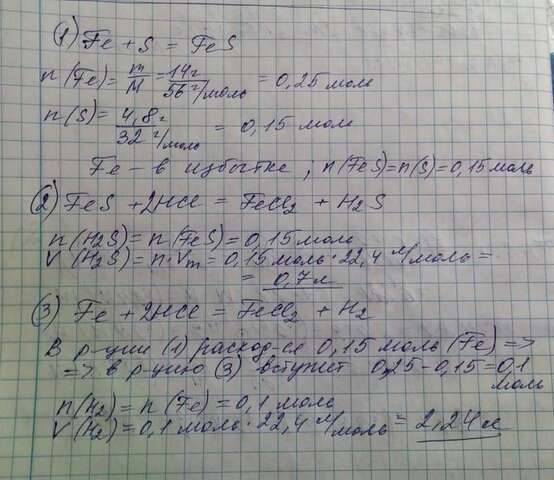 1) Fe + S = FeS
n(Fe) = m/M = 14г / 56 г/моль = 0,25 моль
n(S) = 4,8г / 32 г/моль = 0,15 моль
Fe - в избытке; n(FeS) = n(S) = 0,15 моль
2) FeS + 2HCl = FeCl2 + H2S
n(H2S) = n(FeS) = 0,15 моль
V(H2S) = n·Vm = 0,15 моль · 22,4 л/моль =
= 0,7 л
3) Fe + 2HCl = FeCl2 + H2
В р-ции (1) расход-ся 0,15 моль (Fe) =>
=> в р-цию (3) вступит 0,25 - 0,15 = 0,1
моль
n(H2) = n(Fe) = 0,1 моль
V(H2) = 0,1 моль · 22,4 л/моль = 2,24 л